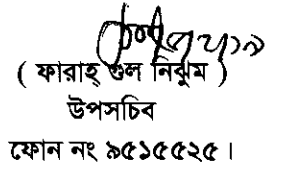 ( ফারাহ্ গুল নিঝুম )
উপসচিব
ফোন নং ৯৫১৫৫২৫।